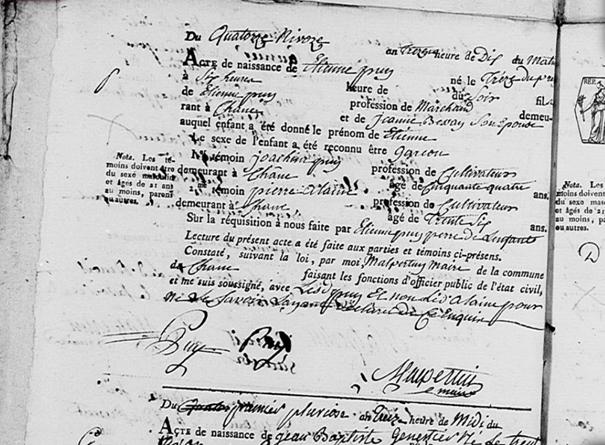 Du Quatorze Nivoze an treize heure de Dix du Matin
Acte de naissance de Etienne puy
à Six heures heure de du Soir né le Treize du pre
de Etienne puy profession de Marchand fils
rant à Chane et de Jeanne Son Epouse demeu-
auquel enfant a été donné le prénom de Etienne
Le sexe de l'enfant a été reconnu être garcon
témoin Joachim puy profession de Cultivateur
demeurant à Chane âgé de Cinquante quatre ans.
témoin pierre alaine profession de Cultivateur
demeurant à Chane âgé de Trente Six ans.
Sur la réquisition à nous faite par Etienne puy pere de Lenfant
Lecture du présent acte a été faite aux parties et témoins ci-présens.
Constaté, suivant la loi, par moi Malpertuis Maire de la commune
de Chane faisant les fonctions d'officier public de l'état civil,
et me suis soussigné, avec Lesd puy Et non Led alaine pour
ne Le Savoir Layant déclaré de Ce Enquis
Nota. Les té-
moins doivent être
du sexe masculin
et âgés de 21 ans
au moins, parens
ou autres.
Puy
Malpertuis
maire
Du premier pluviose an treize heure de Midi du
Acte de naissance de Jean Baptiste
Nota. Les té-
moins doivent
du sexe mas
et âgés de 21
au moins, pa
ou autres.